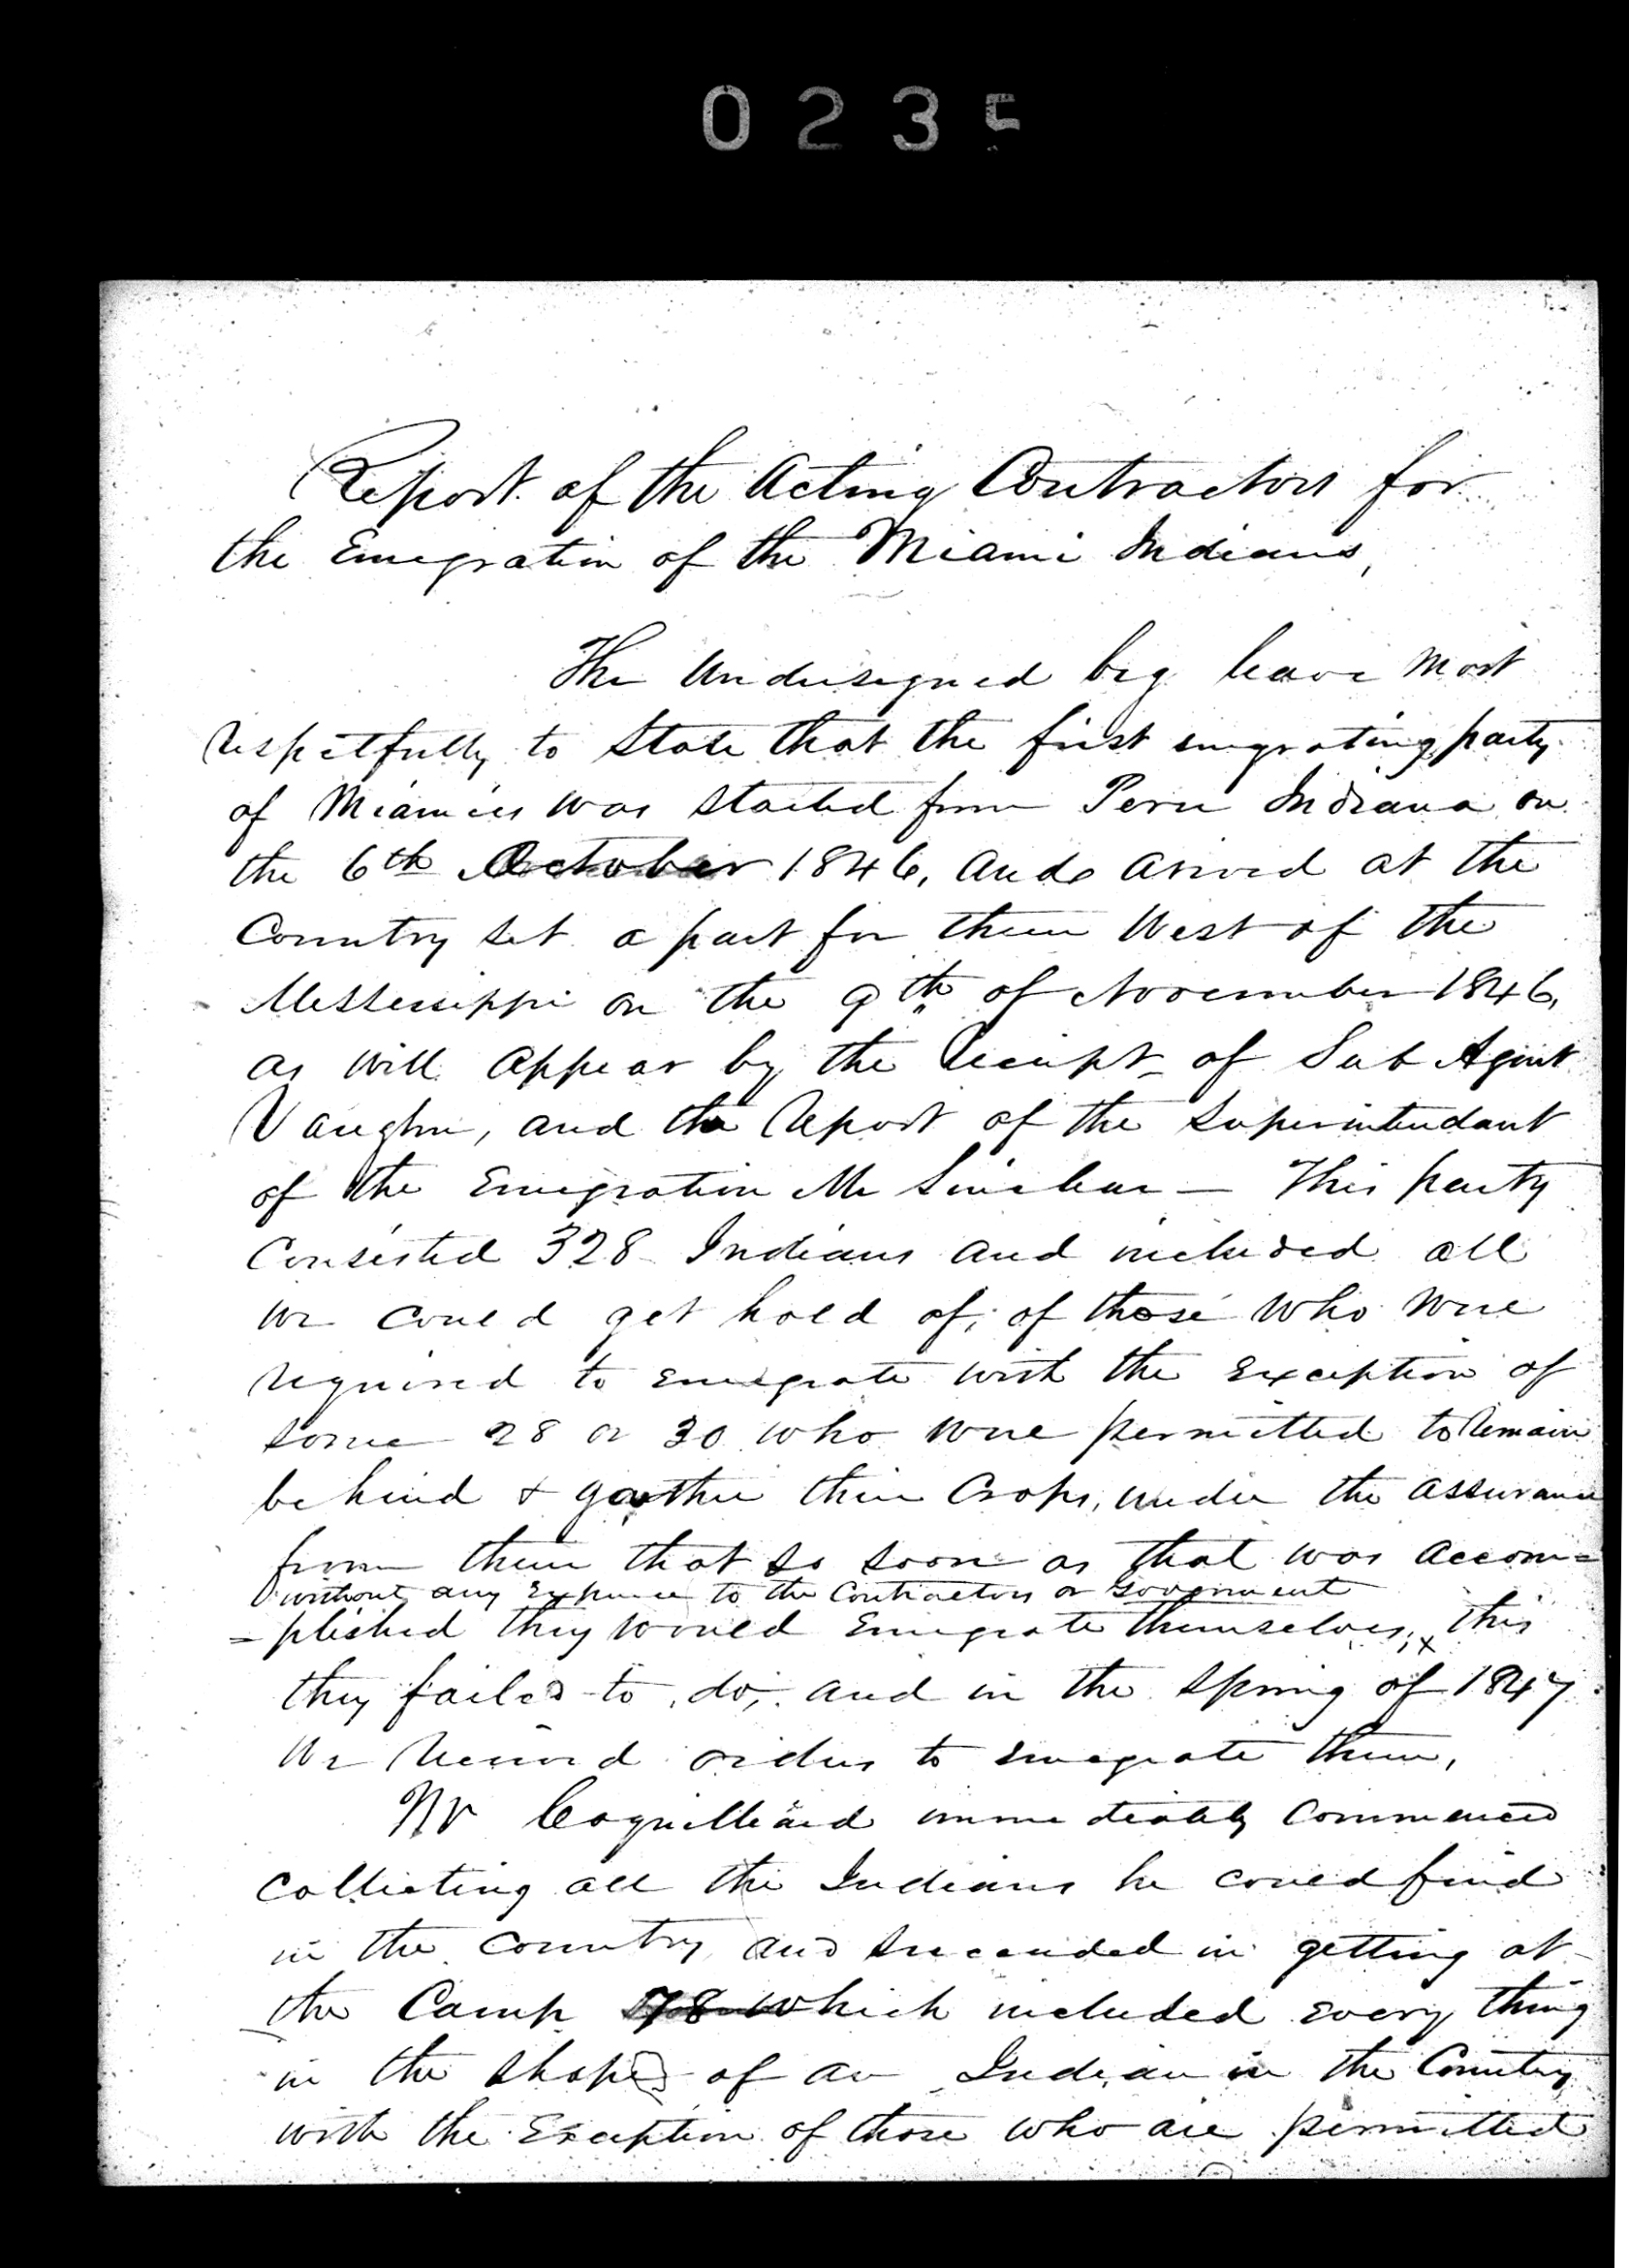 0235
Report of the Acting Contractors for
the Emigration of the Miami Indians,
The Undersigned beg leave most
respectfully to State that the first emigrating party
of Miamies was started from Peru Indiana on
the 6th October 1846, and arived at the
Country set a part for them West of the
Mississippi on the 9th of November 1846,
as will appear by the receipt of Sub Agent
Vaughn, and the report of the Superintendant
of the Emigration Mr Sinclear — This party
Consisted 328 Indians and included all
we could get hold of, of those who were
required to emigrate with the exception of
some 28 or 30 who were permitted to remain
behind & gather their Crops, under the assurance
from them that so soon as that was accom=
without any expence to the Contractors or Government
=plished they would Emigrate themselves, x this
they failed to do, and in the spring of 1847
we received orders to emigrate them,
Mr Coquilliard immediately commenced
collecting all the Indians he could find
in the country and succeeded in getting at
the Camp 78 which included every thing
in the shape of an Indian in the Country
with the Exception of those who are permitted